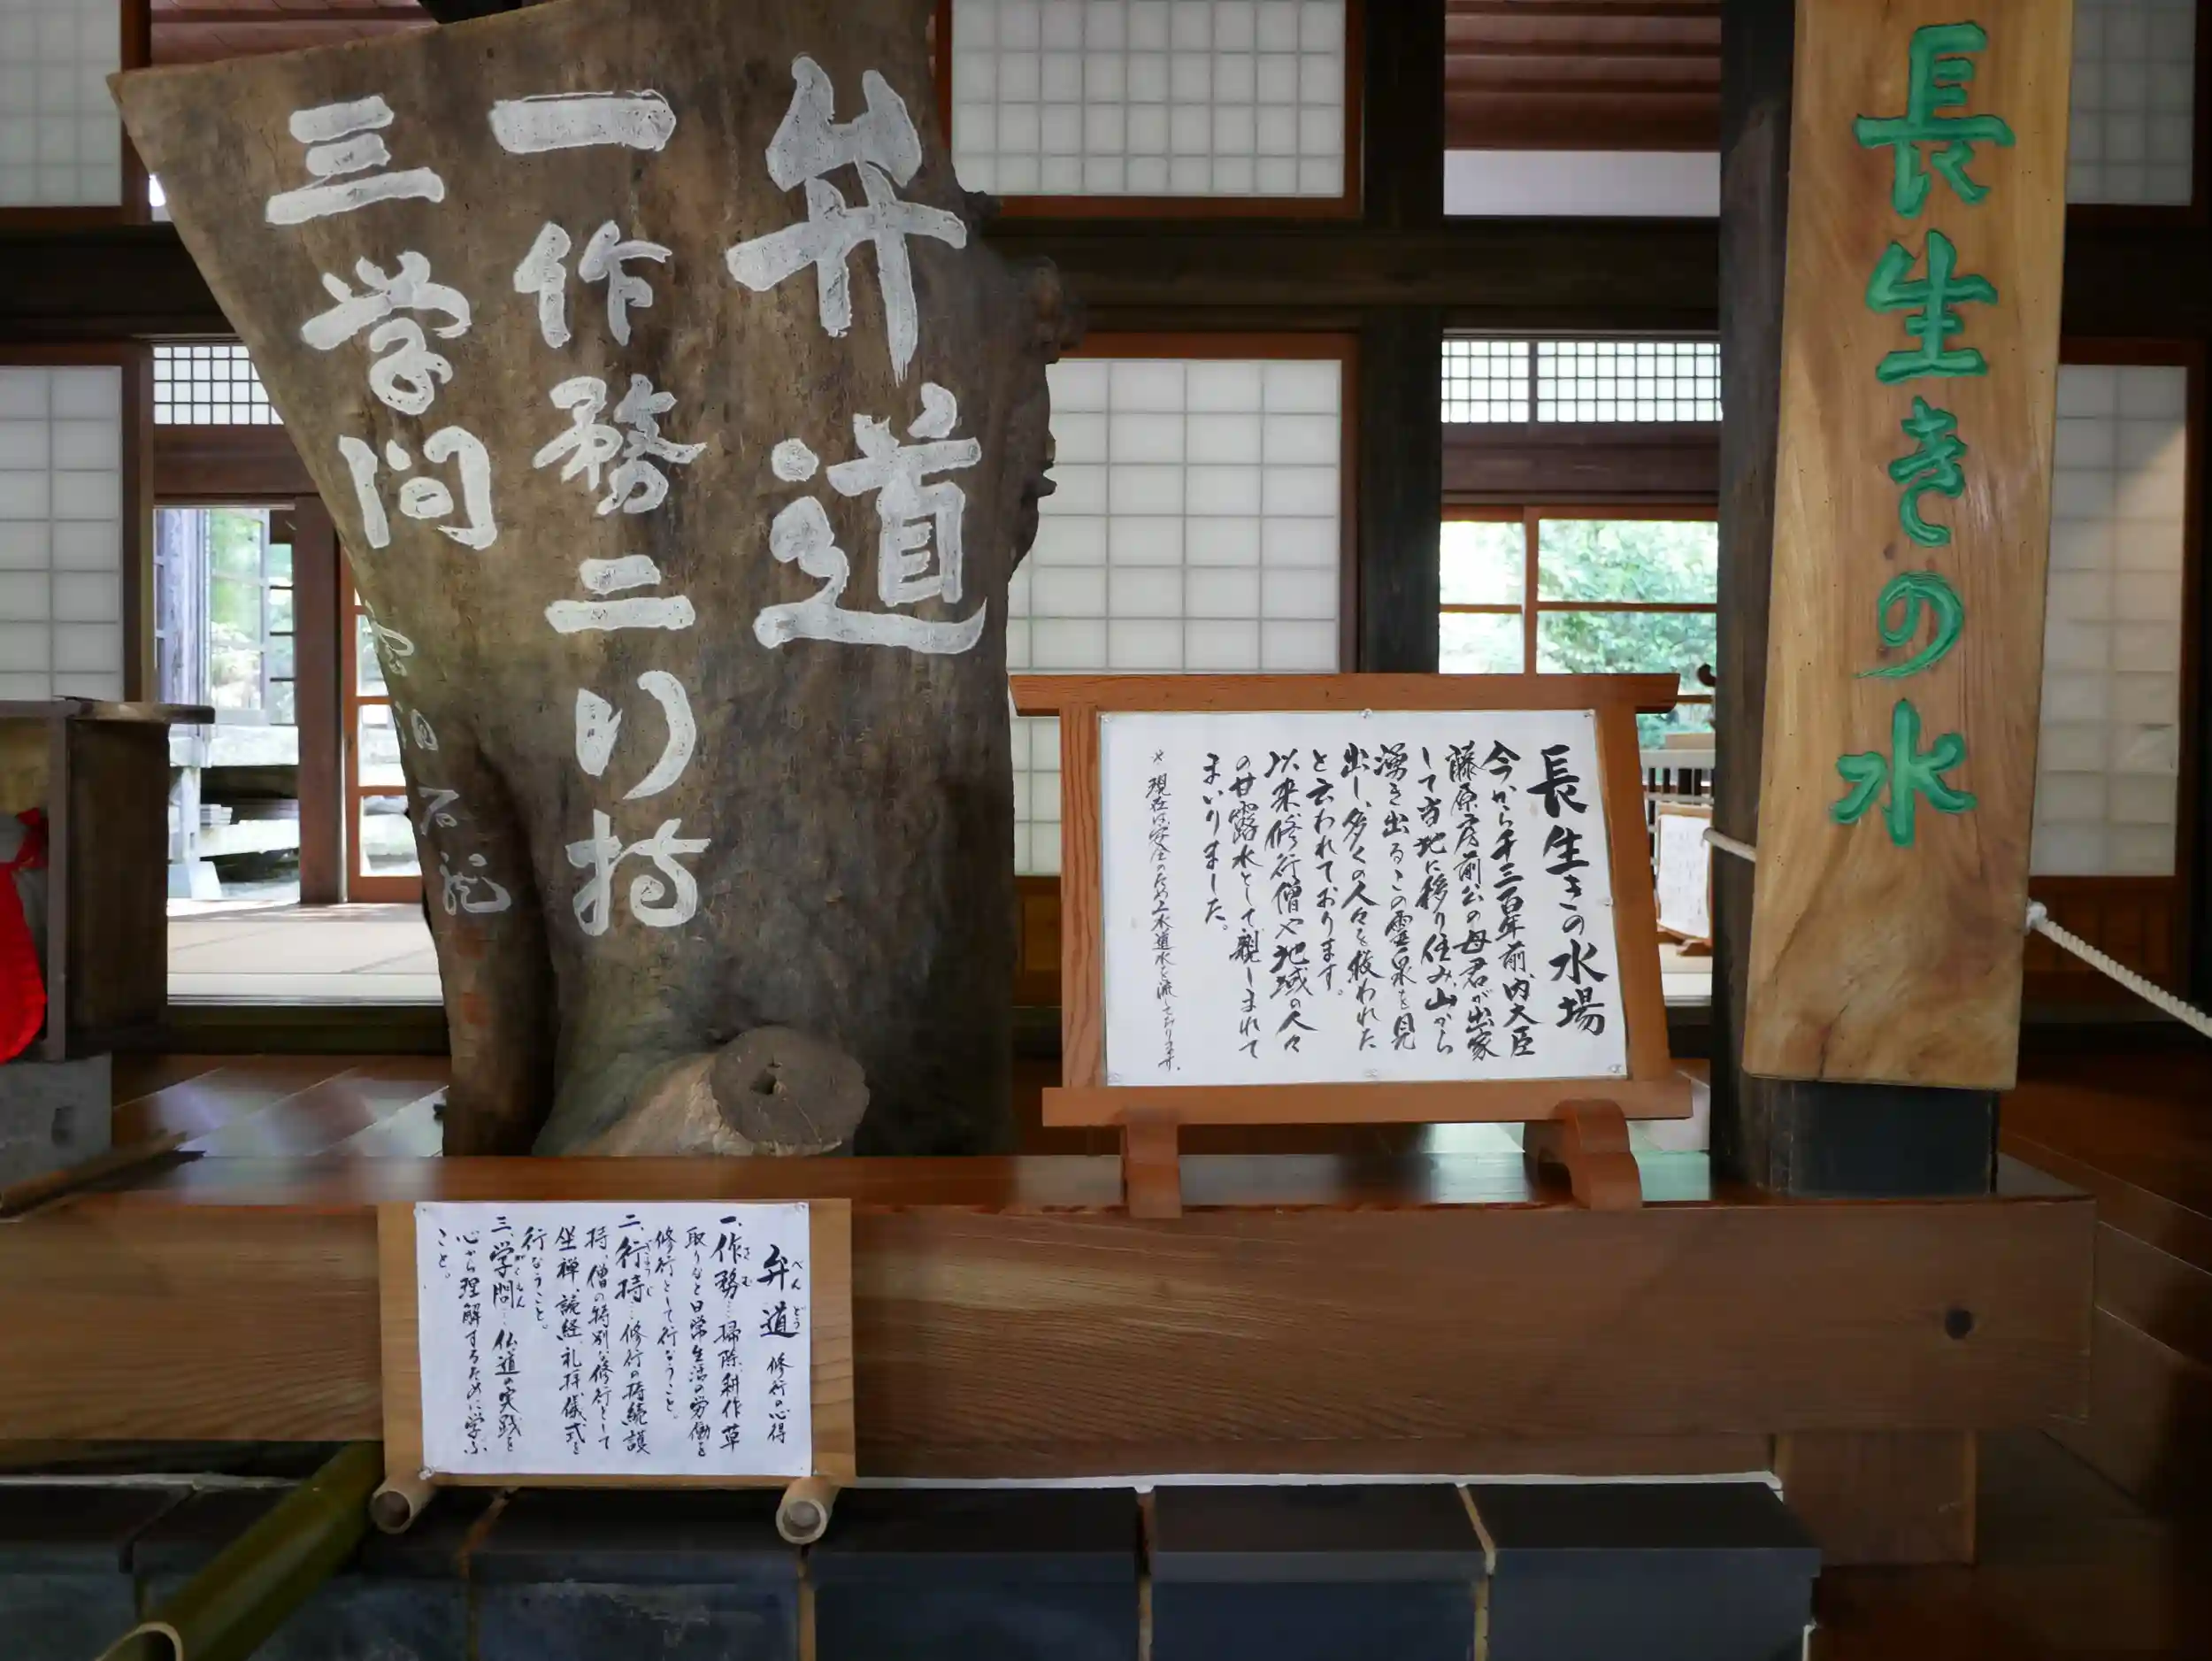 長生きの水
弁道
一作務二行持
三学問
長生きの水場
今から千三百年前、内大臣
藤原房前公の母君が出家
して当地に移り住み、山から
湧き出るこの霊泉を見
出し、多くの人々を救われた
と云われております。
以来、修行僧や地域の人々
の甘露水として、親しまれて
まいりました。
※現在は安全のため上水道水を流しております。
弁道 修行の心得
べんどう
一、作務…掃除、耕作、草
さむ
取りなど日常生活の労働を
修行として行なうこと。
二、行持…修行の持続、護
ぎょうじ
持、僧の特別な修行として
坐禅、読経、礼拝、儀式を
行なうこと。
三、学問…仏道の実践を
がくもん
心から理解するために学ぶ
こと。